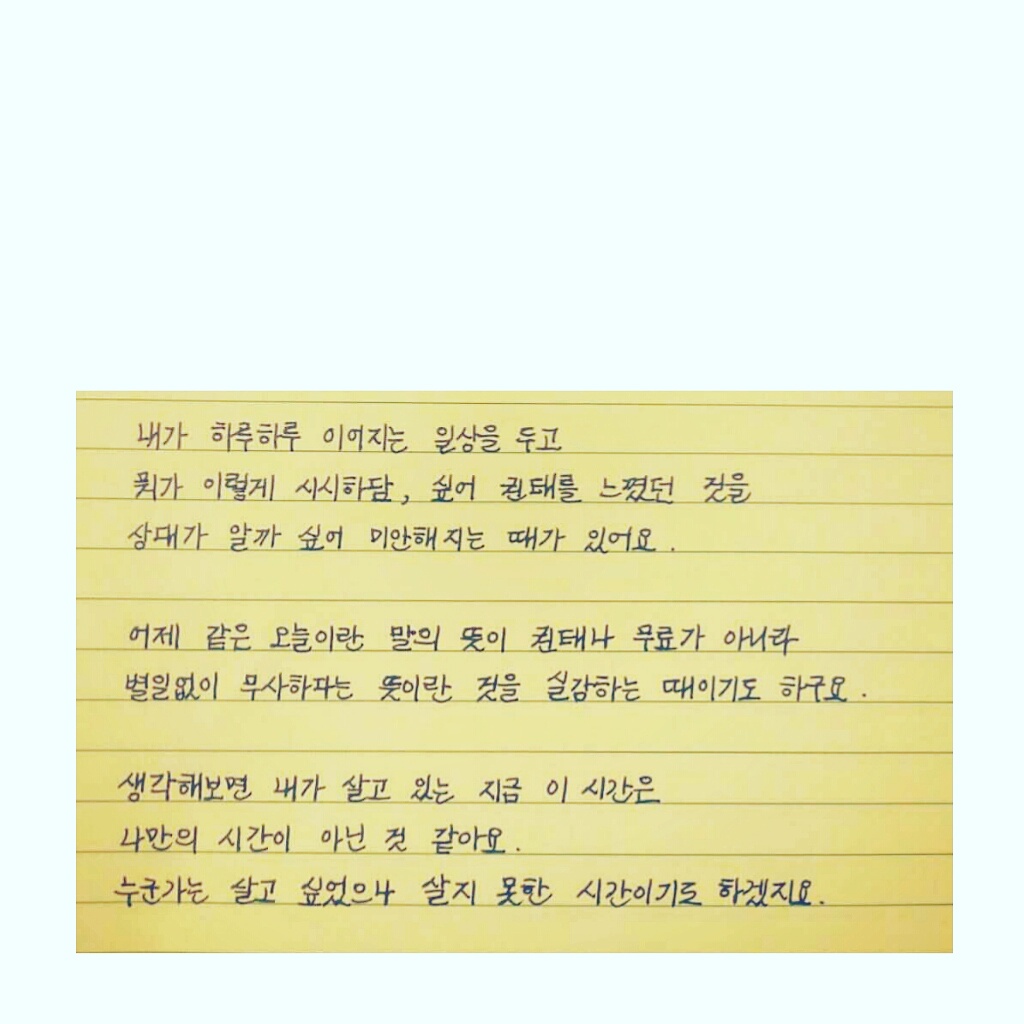 내가 하루하루 이어지는 일상을 두고
뭐가 이렇게 시시하담, 싶어 권태를 느꼈던 것을
상대가 알까 싶어 미안해지는 때가 있어요.
어제 같은 오늘이란 말의 뜻이 권태나 무료가 아니라
별일없이 무사하다는 뜻이란 것을 실감하는 때이기도 하구요.
생각해보면 내가 살고 있는 지금 이 시간은
나만의 시간이 아닌 것 같아요.
누군가는 살고 싶었으나 살지 못한 시간이기도 하겠지요.